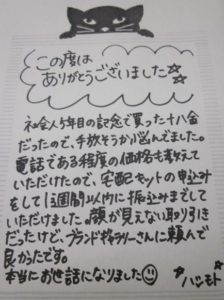 この度は
ありがとうございました☆
社会人5年目の記念で買った十八金
だったので、手放そうか悩んでました。
電話である程度の価格も教えて
いただけたので、宅配キットの申込み
をして1週間以内に振込みまでして
いただけました。顔が見えない取り引き
だったけど、ブランドギャラリーさんに頼んで
良かったです。
本当にお世話になりました☺
ハシモト